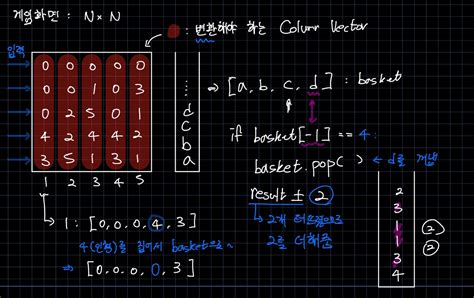 게임화면 : N×N
: 변환해야 하는 Column Vector
입력
0 0 0 0 0
0 0 1 0 3
0 2 5 0 1
4 2 4 4 2
3 5 1 3 1
1 2 3 4 5
⋮
d
c
b
a
⇒ [a, b, c, d] : basket
if basket[-1] == 4:
basket.pop() ← d를 꺼냄
result ± 2
↳ 2개 터트려졌으므로
2를 더해줌
↳ 1 : [0, 0, 0, 4, 3]
4(인형)를 집어서 basket으로 ~
⇒ [0, 0, 0, 0, 3]
2
3
1
1 ②
3 ②
4